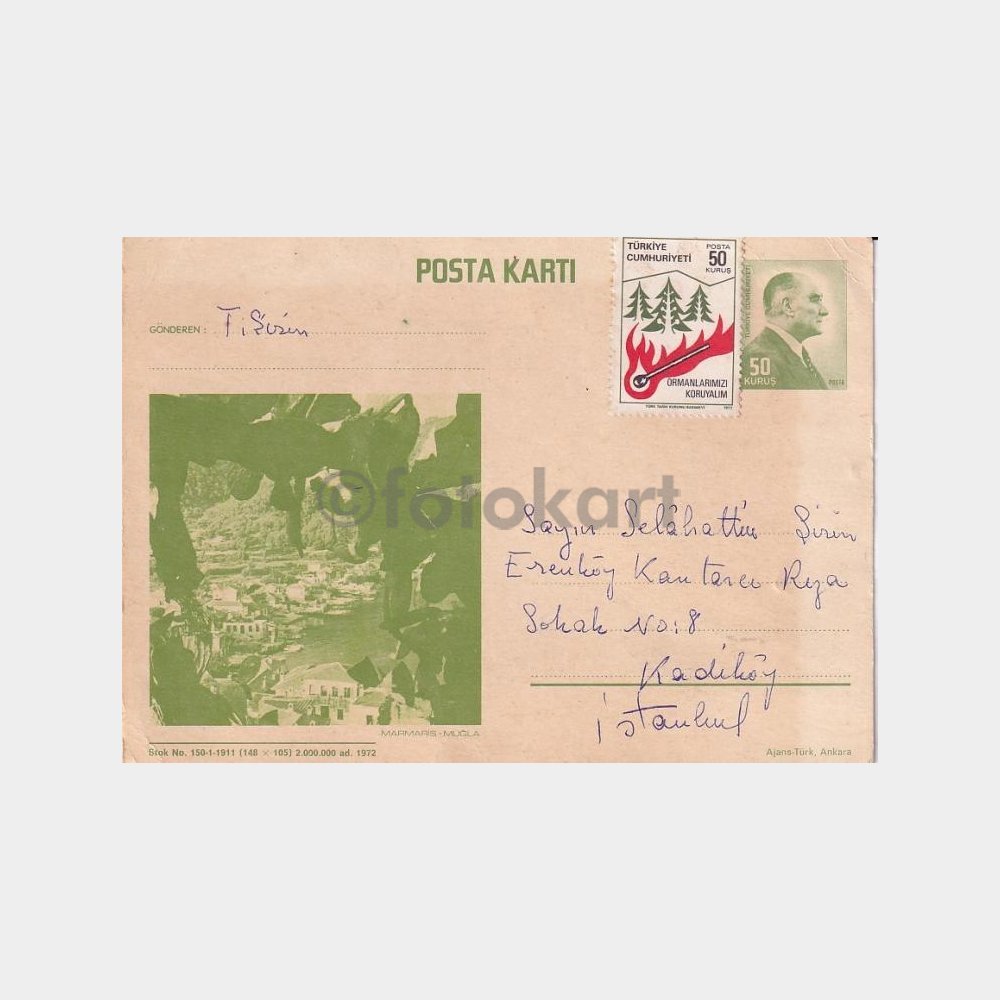 POSTA KARTI
TÜRKİYE
CUMHURİYETİ
POSTA
50
KURUŞ
ORMANLARIMIZI
KORUYALIM
TÜRKİYE CUMHURİYETİ
50
KURUŞ
POSTA
GÖNDEREN : T. Şirin
©fotokart
Sayın Selâhattin Şirin
Erenköy Kantarcı Rıza
Sokak No: 8
Kadıköy
İstanbul
MARMARIS - MUĞLA
Stok No. 150-1-1911 (148 × 105) 2.000.000 ad. 1972
Ajans-Türk, Ankara